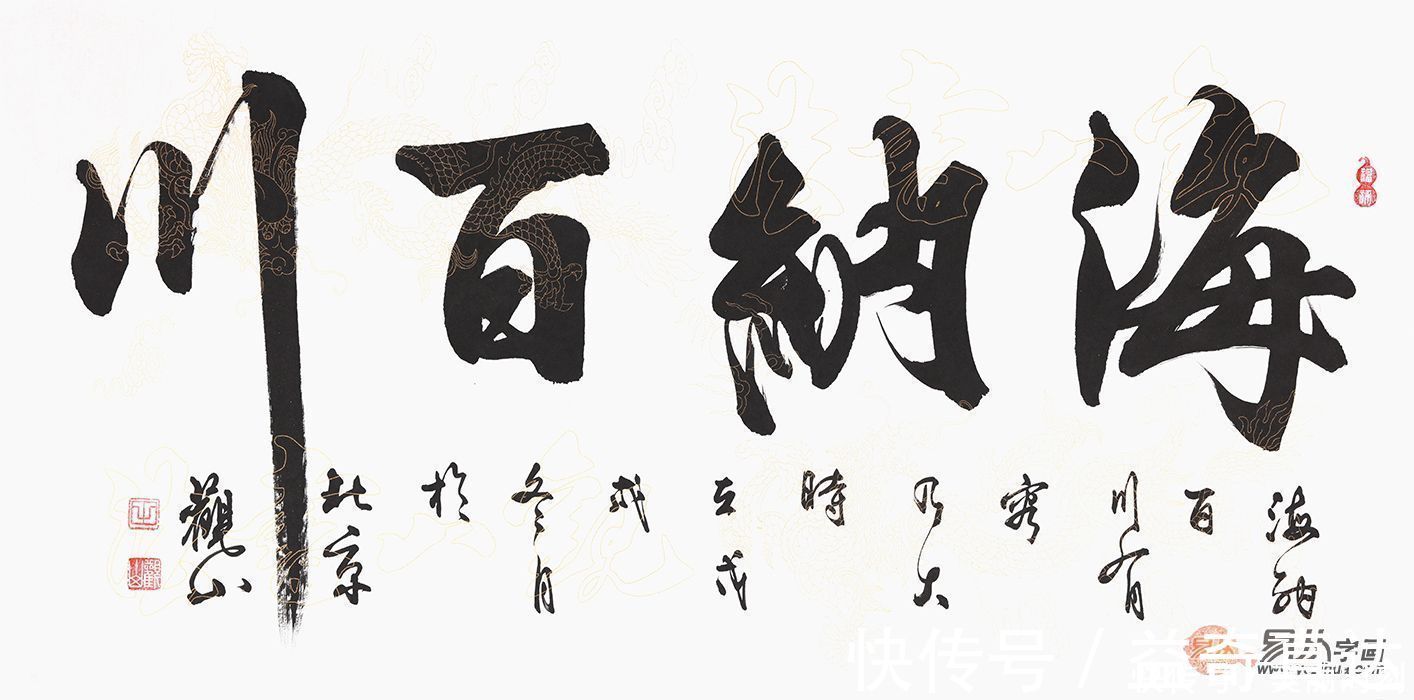 海納百川
海納
百
川有
容
乃大
時
在戊
戌
冬月
於
北京
觀山
觀山
快传号 /
字画